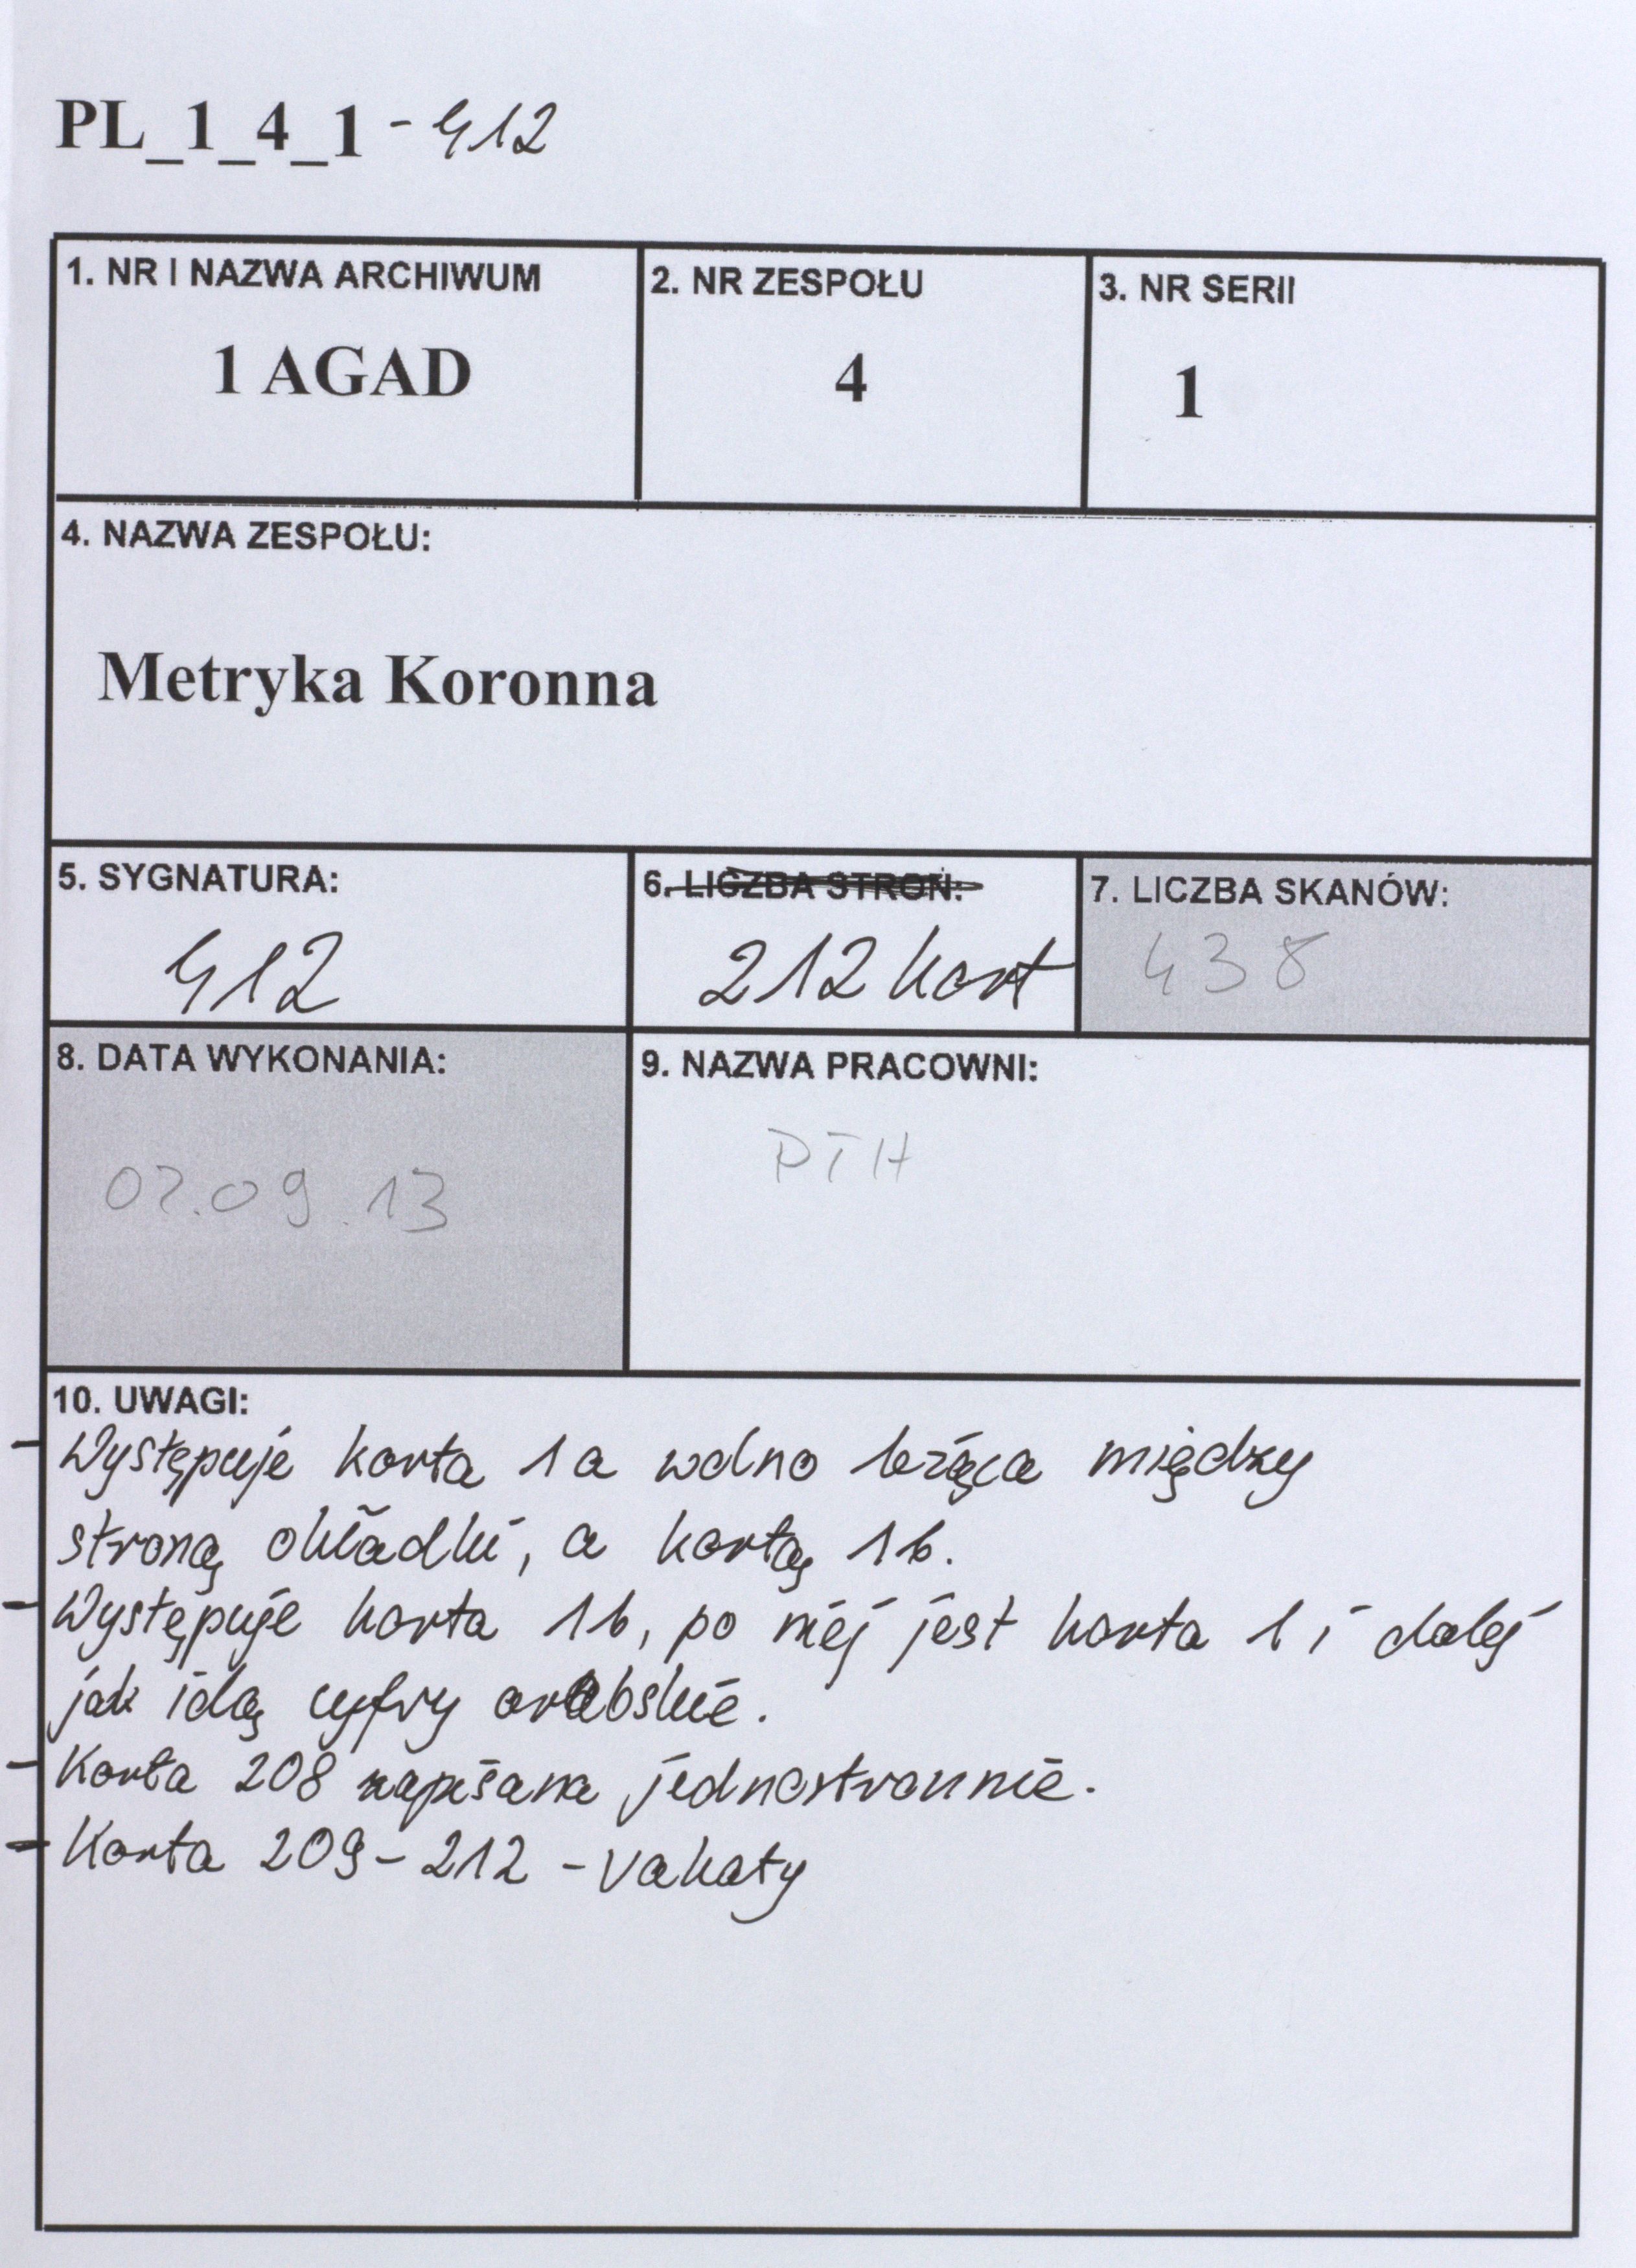 PL_1_4_1 - 412
1. NR I NAZWA ARCHIWUM
1 AGAD
2. NR ZESPOŁU
4
3. NR SERII
1
4. NAZWA ZESPOŁU:
Metryka Koronna
5. SYGNATURA:
412
6. LICZBA STRON:
212 kart
7. LICZBA SKANÓW:
438
8. DATA WYKONANIA:
02.09.13
9. NAZWA PRACOWNI:
PTH
10. UWAGI:
- Występuje karta 1a wolno leżąca między
stroną okładki, a kartą 1b.
- Występuje karta 1b, po niej jest karta 1 i dalej
jak idą cyfry arabskie.
- Karta 208 zapisana jednostronnie.
- Karta 209-212 - vakaty